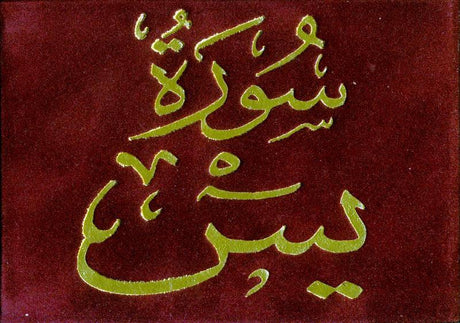 سُورَةُ
يسٓ